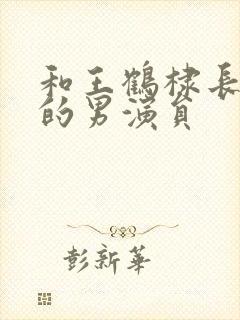 和王鶴棣長
的男演員
彭新華